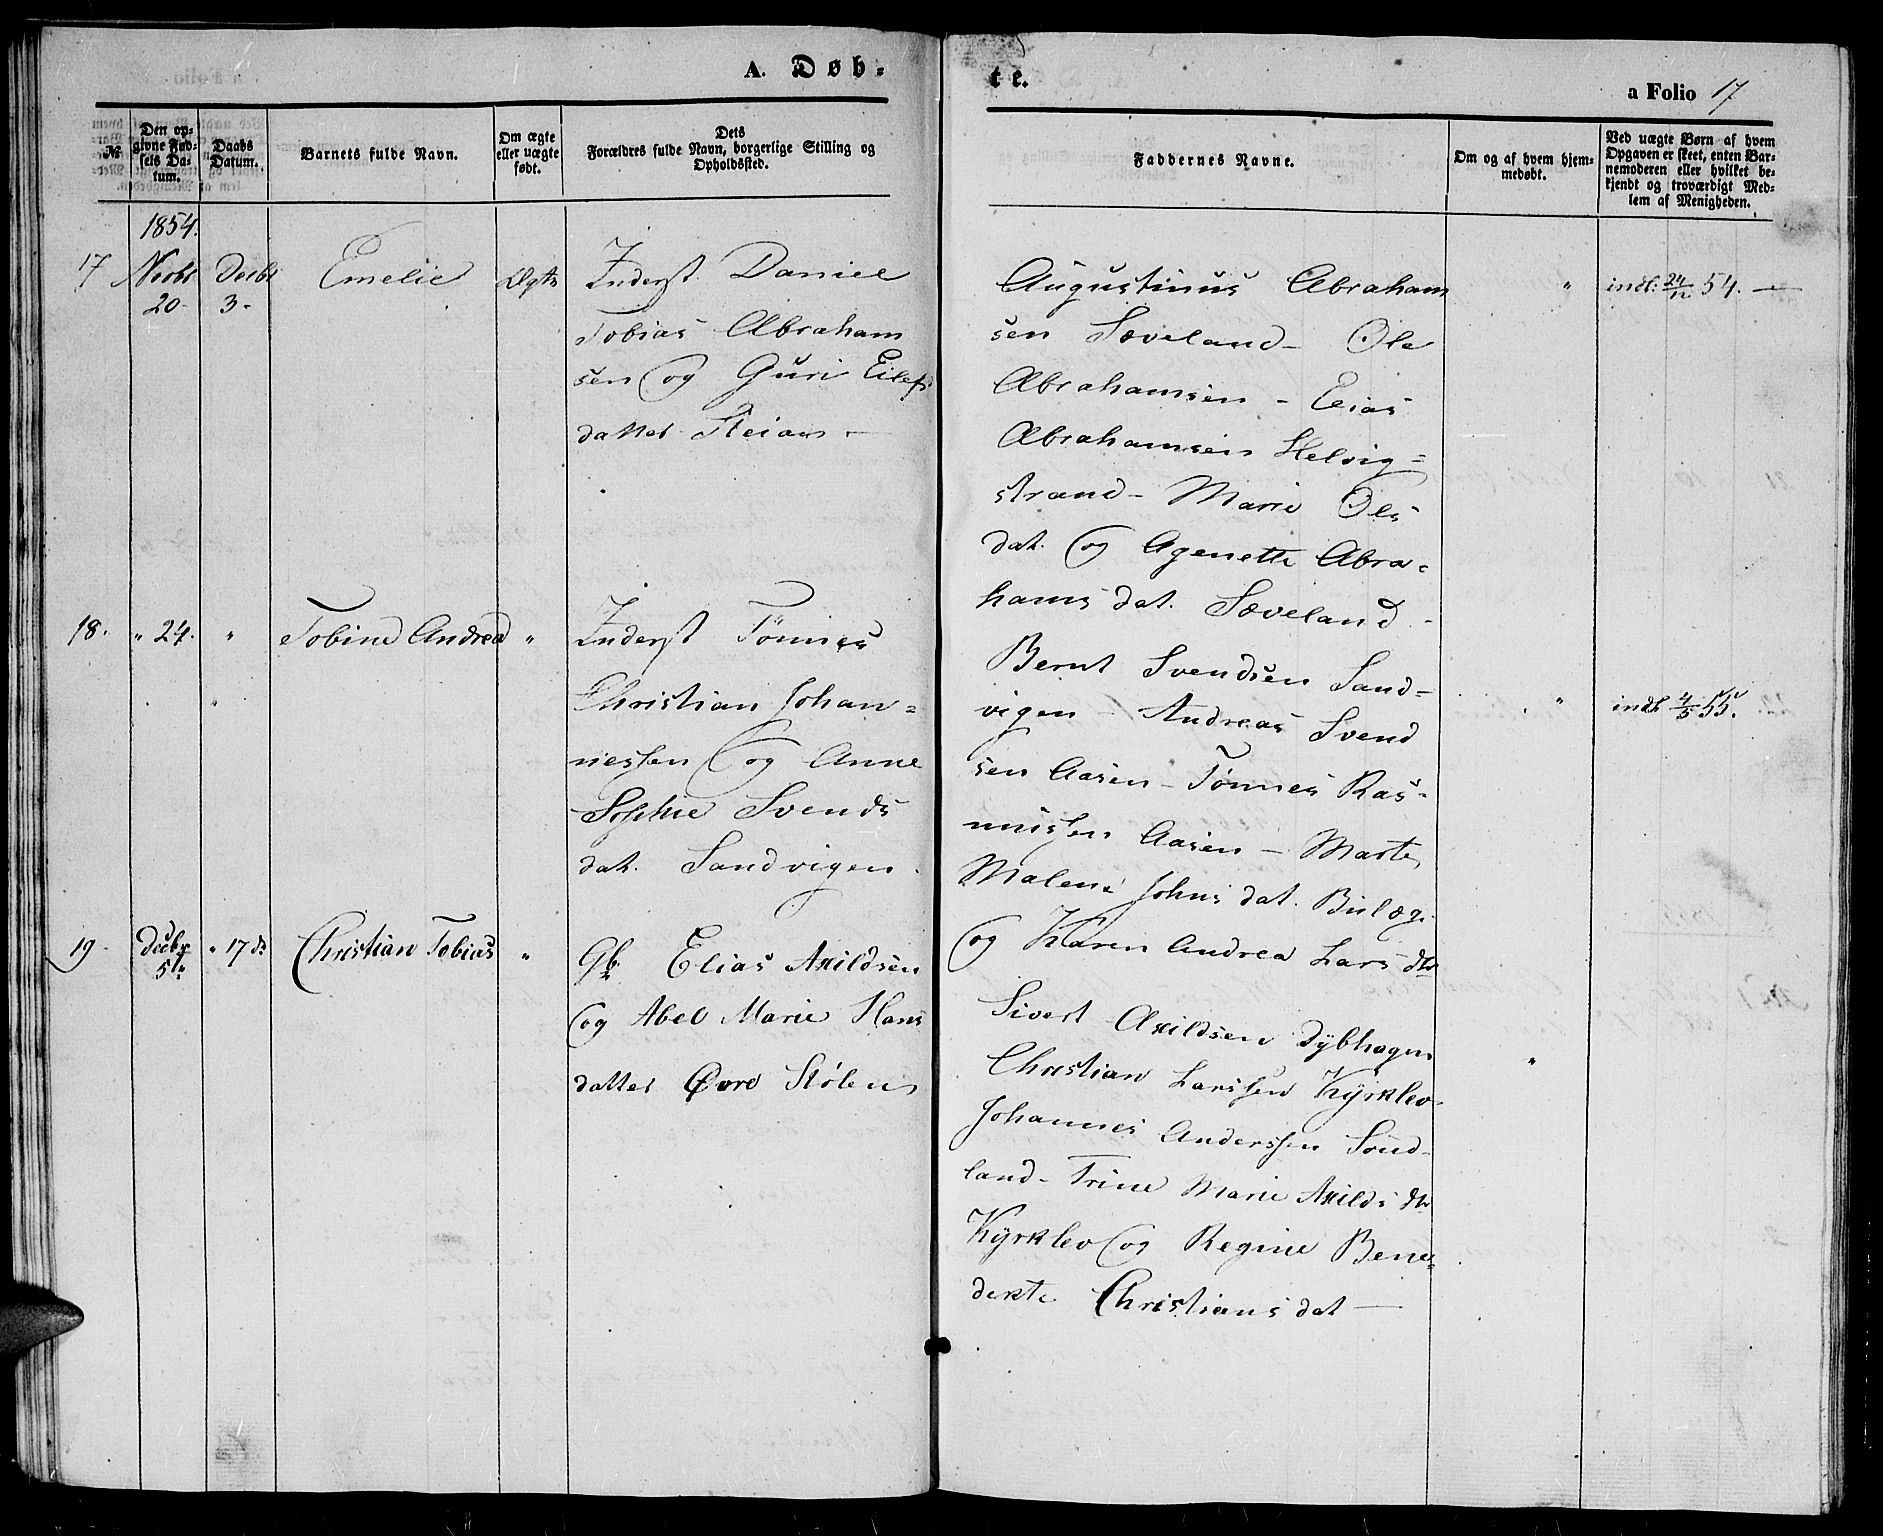 A. Døb-
te.
a Folio 17
№
Den op-
givne Fød-
sels Da-
tum.
Daabs
Datum.
Barnets fulde Navn.
Om ægte
eller uægte
født.
Dets
Forældres fulde Navn, borgerlige Stilling og
Opholdsted.
Faddernes Navne.
Om og af hvem hjem-
medøbt.
Ved uægte Børn af hvem
Opgaven er skeet, enten Bar-
nemoderen eller hvilket be-
kjendt og troværdigt Med-
lem af Menigheden.
1854.
17 Novbr Decbr Emelie Ægte Inderst. Daniel
20- 3-
Tobias Abraham
sen og Guri Eilefs
datter
Augustinus Abraham
sen Sæveland - Ole
Abrahamsen - Elias
Abrahamsen Helvig=
strand - Marie Ols
dat. og Agenette Abra=
hams dat. Sæveland -
" indf: 24/12 54. —
18. " 24. " Tobine Andrea " Inderst Tönnes
Christian Johan=
nessen og Anne
Sophie Svends
dat. Sandvigen.
Bernt Svendsen Sand=
vigen - Andreas Svend
sen Aasen - Tönnes Ras=
mussen Aasen - Marte
Malene Johns dat. Birlæg.
og Karen Andrea Lars dtr
" indf 4/5 55.
19- Decbr " 17 ds Christian Tobias " Gb. Elias Axildsen
5te
og Abel Marie Hans
datter Øvre Stølen
Sivert Axildsen Dybhagen
Christian Larssen Kyrklev-
Johannes Anderssen Sønd-
land - Trine Marie Axilds dtr
Kyrklev og Regine Bene=
dikte Christians dat —
"